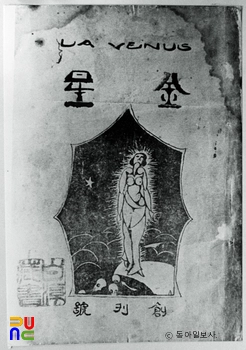 LA VENUS
金星
創刊號
© 동아일보사